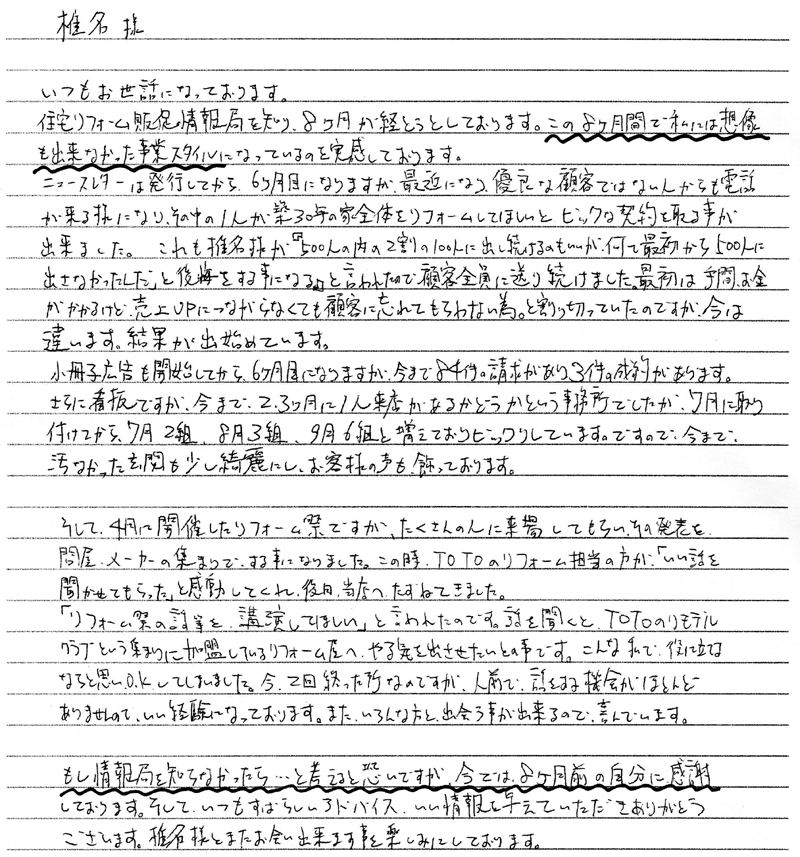 椎名様
いつもお世話になっております。
住宅リフォーム販促情報局を知り、8ヶ月が経とうとしております。この8ヶ月間で私には想像
も出来なかった事業スタイルになっているのを実感しております。
ニュースレターは発行してから、6ヶ月目になりますが、最近になり、優良な顧客ではない人からも電話
が来る様になり、その中の1人が築30年の家全体をリフォームしてほしいと ビックな契約を取る事が
出来ました。 これも椎名様が「500人の内の2割の100人に出し続けるのもいいが、何で最初から500人に
出さなかったんだ」と後悔をする事になる」と言われたので、顧客全員に送り続けました。最初は手間、お金
がかかるけど、売上UPにつながらなくても顧客に忘れてもらわない為。と割り切っていたのですが、今は
違います。結果が出始めています。
小冊子広告も開始してから、6ヶ月目になりますが、今まで84件の請求があり、3件の成約があります。
さらに看板ですが、今まで、2、3ヶ月に1人来店があるかどうかという事務所でしたが、7月に取り
付けてから、7月2組、8月3組、9月6組と増えておりビックリしています。ですので、今まで、
汚なかった玄関も少し綺麗にし、お客様の声も、飾っております。
そして、4月に開催したリフォーム祭ですが、たくさんの人に来場してもらい、その発表を
問屋、メーカーの集まりで、する事になりました。この時、TOTOのリフォーム担当の方が、「いい話を
聞かせてもらった」と感動してくれ、後日、当店へたずねてきました。
「リフォーム祭の話等を、講演してほしい」と言われたのです。話を聞くと、TOTOのリモデル
クラブという集まりに加盟しているリフォーム店へ、やる気を出させたいとの事です。こんな私で、役に立は
なると思いO.Kしてしまいました。今、2回終った所なのですが、人前で、話をする機会がほとんど
ありませんので、いい経験になっております。また、いろんな方と、出会う事が出来るので、喜んでいます。
もし情報局を知らなかったら…と考えると恐いですが、今では、8ヶ月前の自分に感謝
しております。そして、いつもすばらしいアドバイス、いい情報を与えていただきありがとう
ございます。椎名様とまたお会い出来ます事を楽しみにしております。